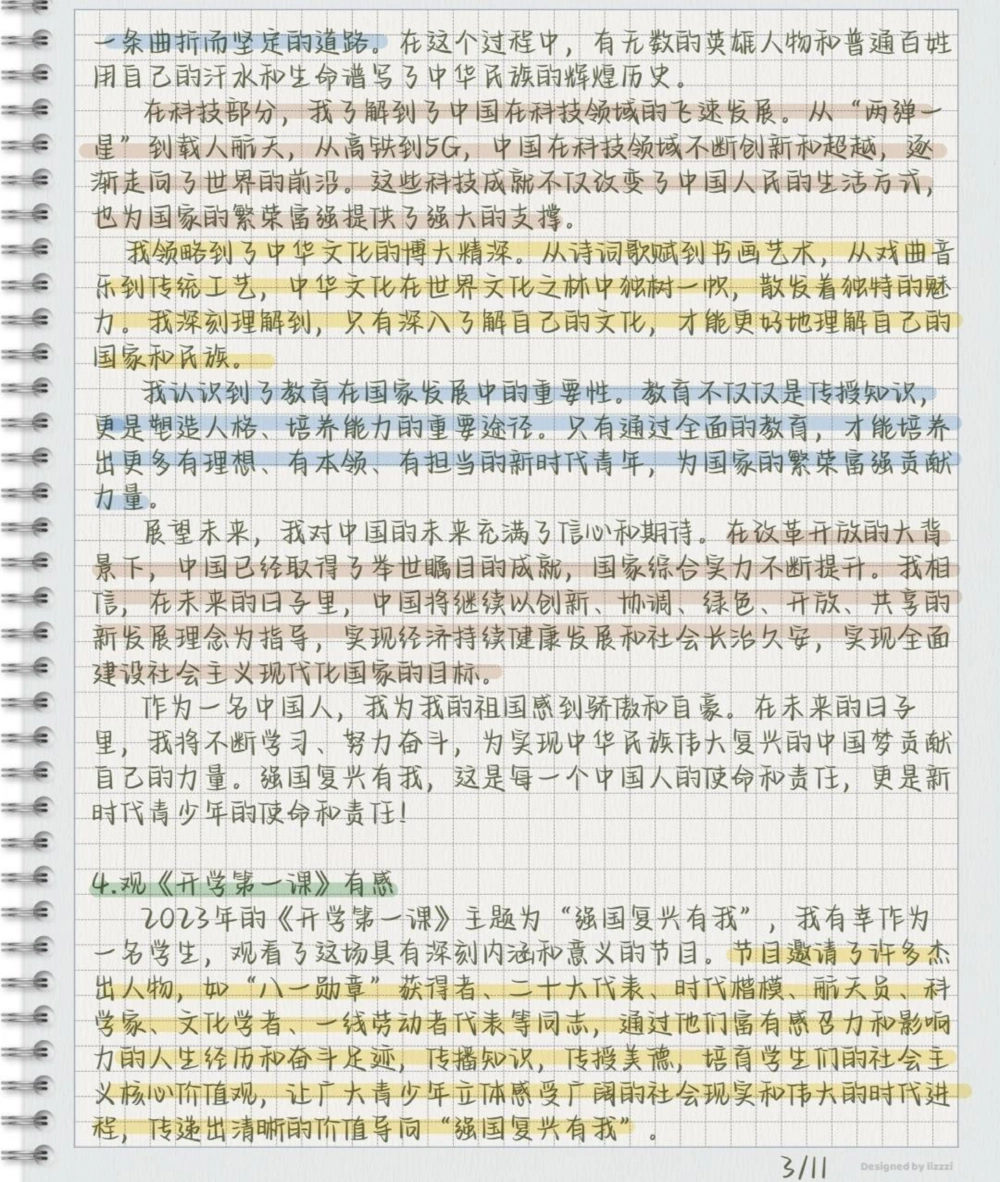 一条曲折而坚定的道路。在这个过程中，有无数的英雄人物和普通百姓
用自己的汗水和生命谱写了中华民族的辉煌历史。
在科技部分，我了解到了中国在科技领域的飞速发展。从“两弹一
星”到载人航天，从高铁到5G，中国在科技领域不断创新和超越，逐
渐走向了世界的前沿。这些科技成就不仅改变了中国人民的生活方式，
也为国家的繁荣富强提供了强大的支撑。
我领略到了中华文化的博大精深。从诗词歌赋到书画艺术，从戏曲音
乐到传统工艺，中华文化在世界文化之林中独树一帜，散发着独特的魅
力。我深刻理解到，只有深入了解自己的文化，才能更好地理解自己的
国家和民族。
我认识到了教育在国家发展中的重要性。教育不仅仅是传授知识，
更是塑造人格、培养能力的重要途径。只有通过全面的教育，才能培养
出更多有理想、有本领、有担当的新时代青年，为国家的繁荣富强贡献
力量。
展望未来，我对中国的未来充满了信心和期待。在改革开放的大背
景下，中国已经取得了举世瞩目的成就，国家综合实力不断提升。我相
信，在未来的日子里，中国将继续以创新、协调、绿色、开放、共享的
新发展理念为指导，实现经济持续健康发展和社会长治久安，实现全面
建设社会主义现代化国家的目标。
作为一名中国人，我为我的祖国感到骄傲和自豪。在未来的日子
里，我将不断学习、努力奋斗，为实现中华民族伟大复兴的中国梦贡献
自己的力量。强国复兴有我，这是每一个中国人的使命和责任，更是新
时代青少年的使命和责任！
4.观《开学第一课》有感
2023年的《开学第一课》主题为“强国复兴有我”，我有幸作为
一名学生，观看了这场具有深刻内涵和意义的节目。节目邀请了许多杰
出人物，如“八一勋章”获得者、二十大代表、时代楷模、航天员、科
学家、文化学者、一线劳动者代表等同志，通过他们富有感召力和影响
力的人生经历和奋斗足迹，传播知识，传授美德，培育学生们的社会主
义核心价值观，让广大青少年立体感受广阔的社会现实和伟大的时代进
程，传递出清晰的价值导向“强国复兴有我”。
3/11
Designed by iizzzi